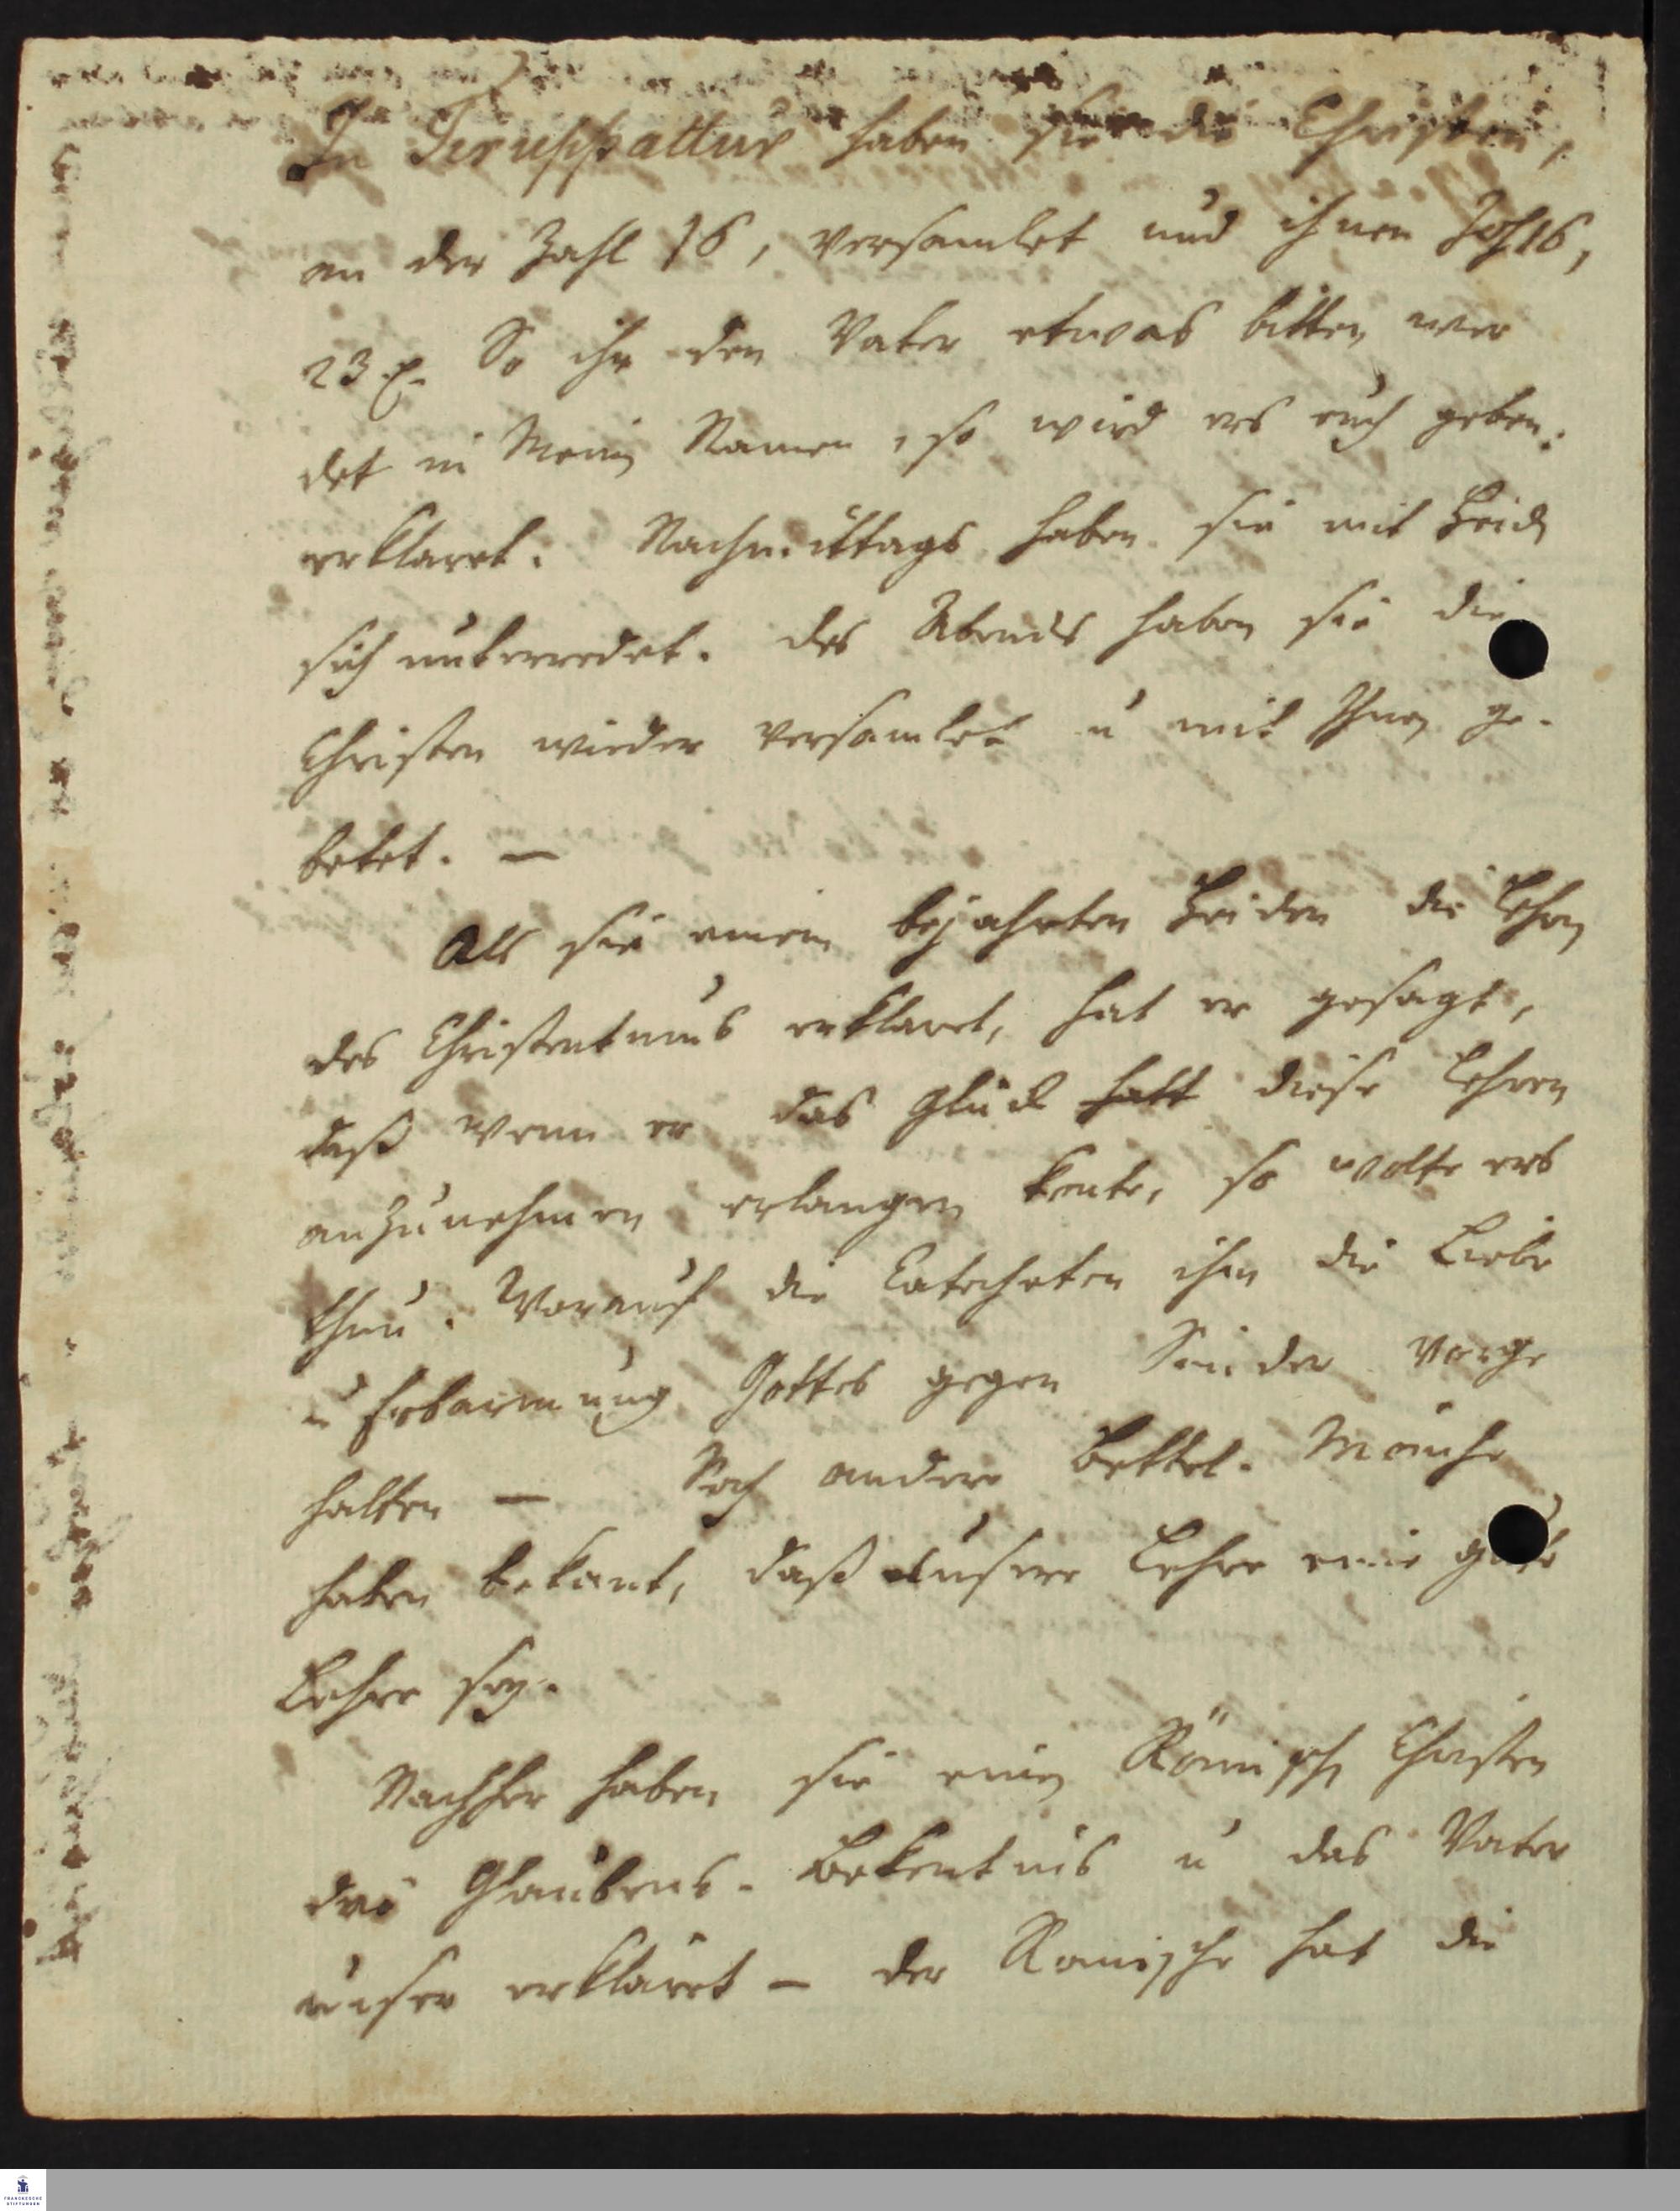 In Tiruppattur haben sie die Christen,
an der Zahl 16, versamlet und ihnen Joh 16,
23 p. So ihr den Vater etwas bitten wer
det in Mein Namen, so wird ers euch geben:
erklaret. Nachmittags haben sie mit Heid
sich unterredet. des Abends haben sie die
Christen wieder versamlet u mit Ihnen ge-
betet. —
Als sie einem bejahrten Heiden die Lehren
des Christentums erklaret, hat er gesagt,
daß wenn er das Glück hatt diese Lehren
anzunehmen erlangen konte, so wolte ers
thun. Worauf die Catecheten ihm die Liebe
u Erbarmung Gottes gegen Sünder vorge
halten — Noch andere Bettel-Mönche
haben bekant, daß unsere Lehre eine gute
Lehre sey.
Nachher haben sie einen Römisch Christen
das Glaubens-Bekentnis u das Vater
unser erkläret — der Römische hat die
FRANCKESCHE
STIFTUNGEN